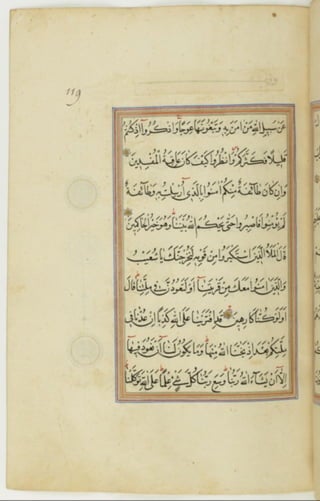 119
عَنْ سَبِيلِ اللَّهِ مَنْ آمَنَ بِهِ وَتَبْغُونَهَا عِوَجًا وَاذْكُرُوا إِذْ كُنْتُمْ
قَلِيلًا فَكَثَّرَكُمْ وَانْظُرُوا كَيْفَ كَانَ عَاقِبَةُ الْمُفْسِدِينَ
وَإِنْ كَانَ طَائِفَةٌ مِنْكُمْ آمَنُوا بِالَّذِي أُرْسِلْتُ بِهِ وَطَائِفَةٌ
لَمْ يُؤْمِنُوا فَاصْبِرُوا حَتَّى يَحْكُمَ اللَّهُ بَيْنَنَا وَهُوَ خَيْرُ الْحَاكِمِينَ
قَالَ الْمَلَأُ الَّذِينَ اسْتَكْبَرُوا مِنْ قَوْمِهِ لَنُخْرِجَنَّكَ يَا شُعَيْبُ
وَالَّذِينَ آمَنُوا مَعَكَ مِنْ قَرْيَتِنَا أَوْ لَتَعُودُنَّ فِي مِلَّتِنَا قَالَ
أَوَلَوْ كُنَّا كَارِهِينَ قَدِ افْتَرَيْنَا عَلَى اللَّهِ كَذِبًا إِنْ عُدْنَا فِي
مِلَّتِكُمْ بَعْدَ إِذْ نَجَّانَا اللَّهُ مِنْهَا وَمَا يَكُونُ لَنَا أَنْ نَعُودَ فِيهَا
إِلَّا أَنْ يَشَاءَ اللَّهُ رَبُّنَا وَسِعَ رَبُّنَا كُلَّ شَيْءٍ عِلْمًا عَلَى اللَّهِ تَوَكَّلْنَا